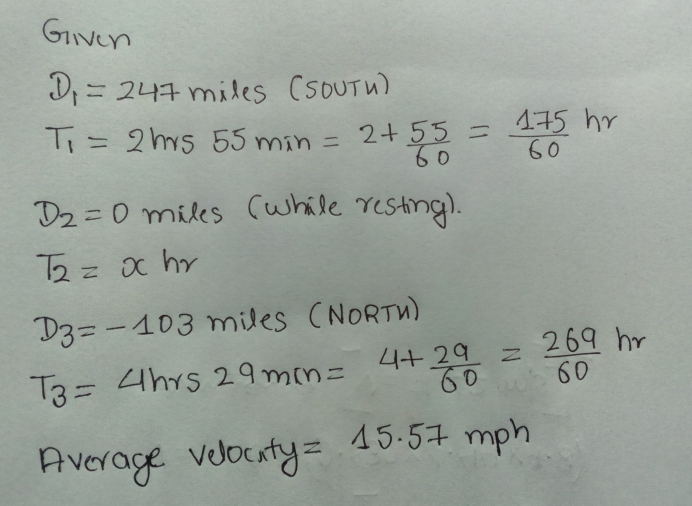 Given
D₁ = 247 miles (SOUTH)
T₁ = 2hrs 55 min = 2 + 55/60 = 175/60 hr
D₂ = 0 miles (while resting).
T₂ = x hr
D₃ = -103 miles (NORTH)
T₃ = 4hrs 29min = 4 + 29/60 = 269/60 hr
Average velocity = 15.57 mph